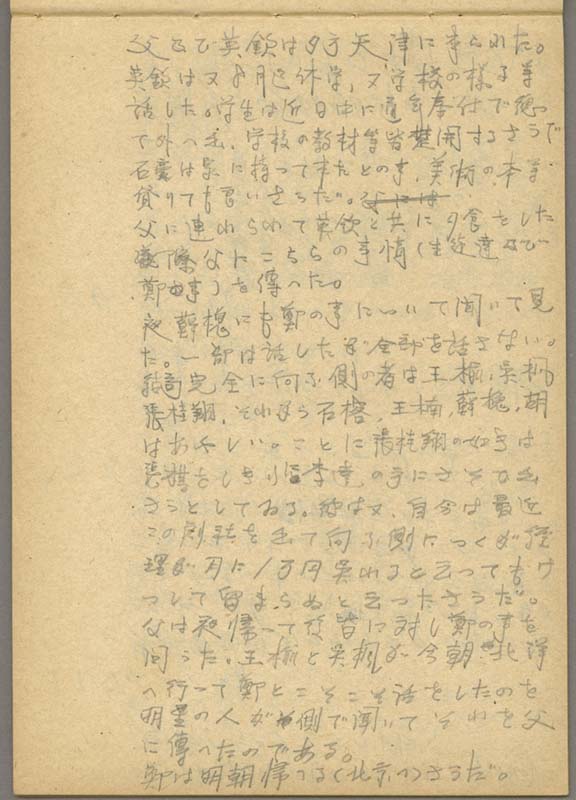 父と英欽は夕方天津に来られた。
英欽は又 休学、又学校の様子等
話した。学生は近日中に道 奉仕で
て外へ出、学校の教材等皆 開するさうで
石膏は に持って来たとの事、美術の本等
借りても宜いさうだ。父には
父に連れられて英欽と共に夕食をした
後 父にこちらの事情(生徒達及び
鄭の事)を傳へた。
夜韓槐にも鄭の事について聞いて見
た。一部は話したが全部を話さない。
結局完全に向ふ側の者は王楡、呉楓
張桂翔、それから石榕、王楠、韓槐、胡
はあやしい。ことに張桂翔の如きは
張 をしきりに李 の手にさそひ出
さうとしてゐる。彼は又、自分は最近
この劇社を出て向ふ側につくが経
理が月に1万円呉れると云っても
して留まらぬと云ったさうだ。
父は夜帰って後皆に対し鄭の事を
問うた。王楡と呉楓が今朝北洋
へ行って鄭とこそこそ話をしたのを
明星の人が側で聞いてそれを父
に傳へたのである。
鄭は明朝帰へる(北京へ)さうだ。